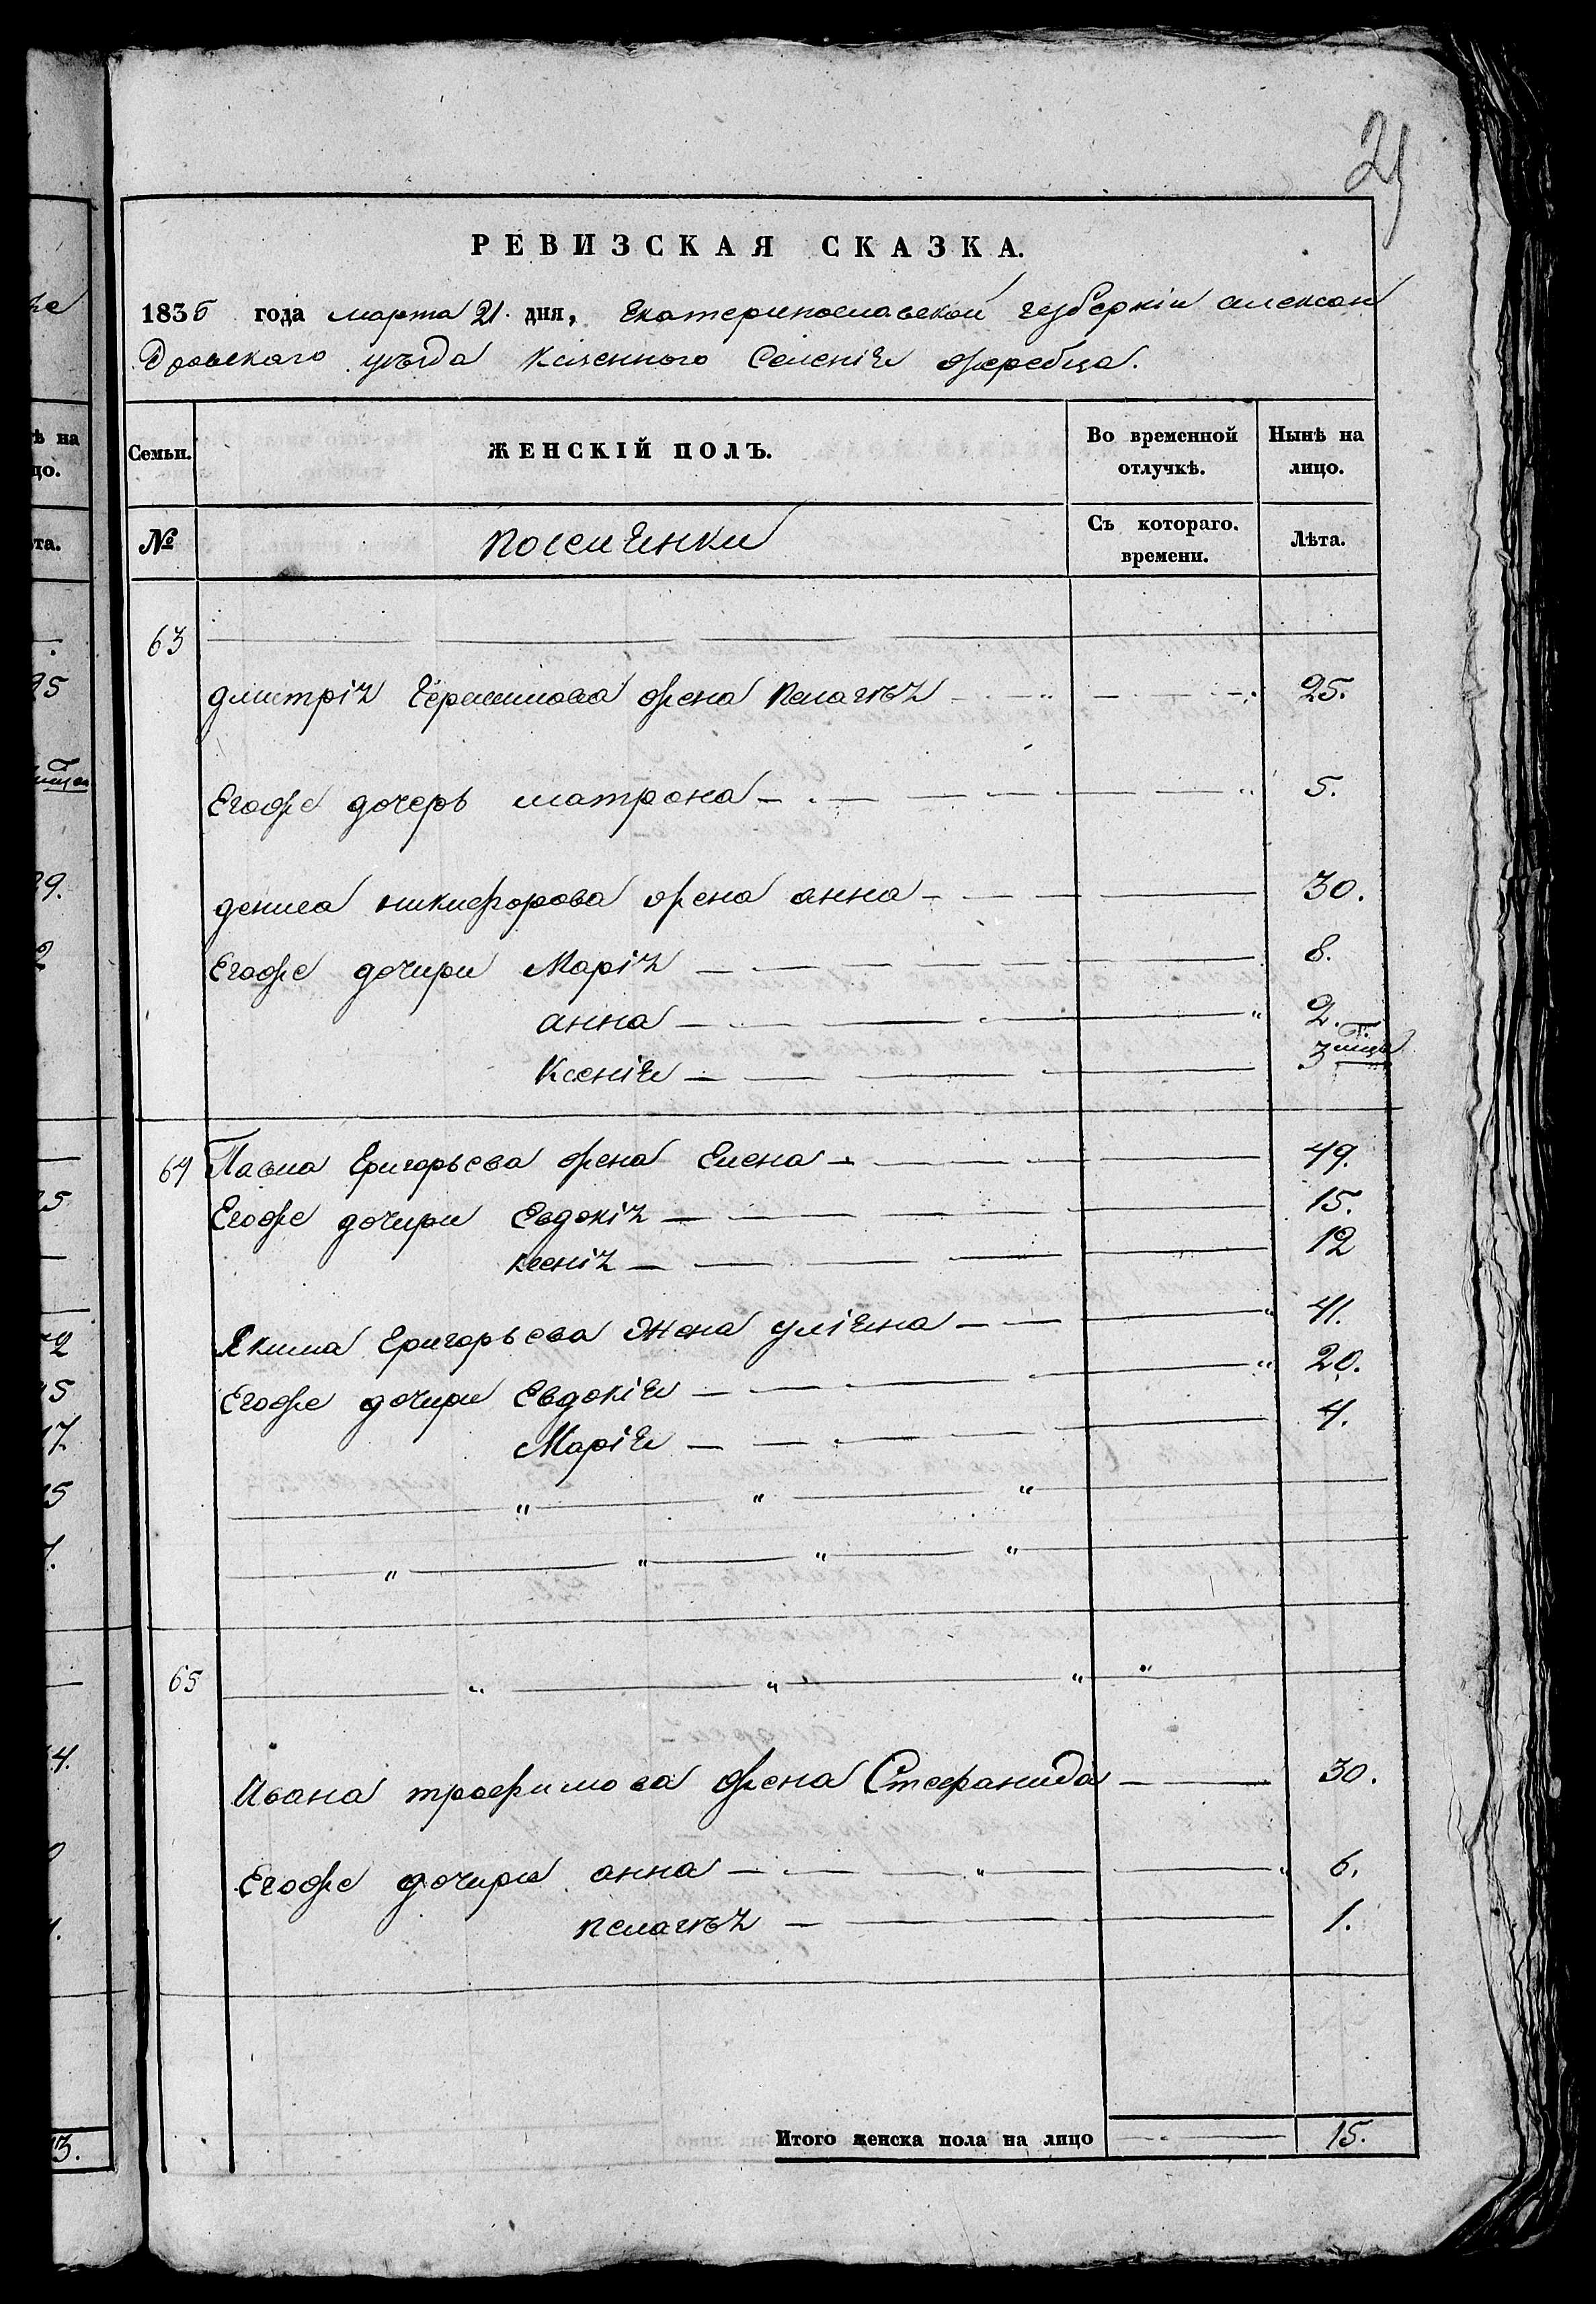 РЕВИЗСКАЯ СКАЗКА.
1835 года марта 21. дня, Екатеринославской губерніи Алексан
дровскаго уѣзда Казенного Селенія жеребца.
Семьи. ЖЕНСКІЙ ПОЛЪ. Во временной отлучкѣ. Нынѣ на лицо.
№ поселянки Съ котораго. времени. Лѣта.
63
дмитрія Герасимова жена Пелагѣя 25.
Егоже дочерь матрона 5.
дениса никифорова жена анна 30.
Егоже дочири Марія 8.
анна 2.
Ксенія 3 мца
64 Павла Григорьева жена Елена 49.
Егоже дочири Евдокія 15.
ксенія 12
Якима Григорьева жена уліяна 41.
Егоже дочири Евдокія 20.
Марія 4.
65
Ивана трофимова жена Стефанида 30.
Егоже дочири анна 6.
пелагѣя 1.
Итого женска пола на лицо 15.